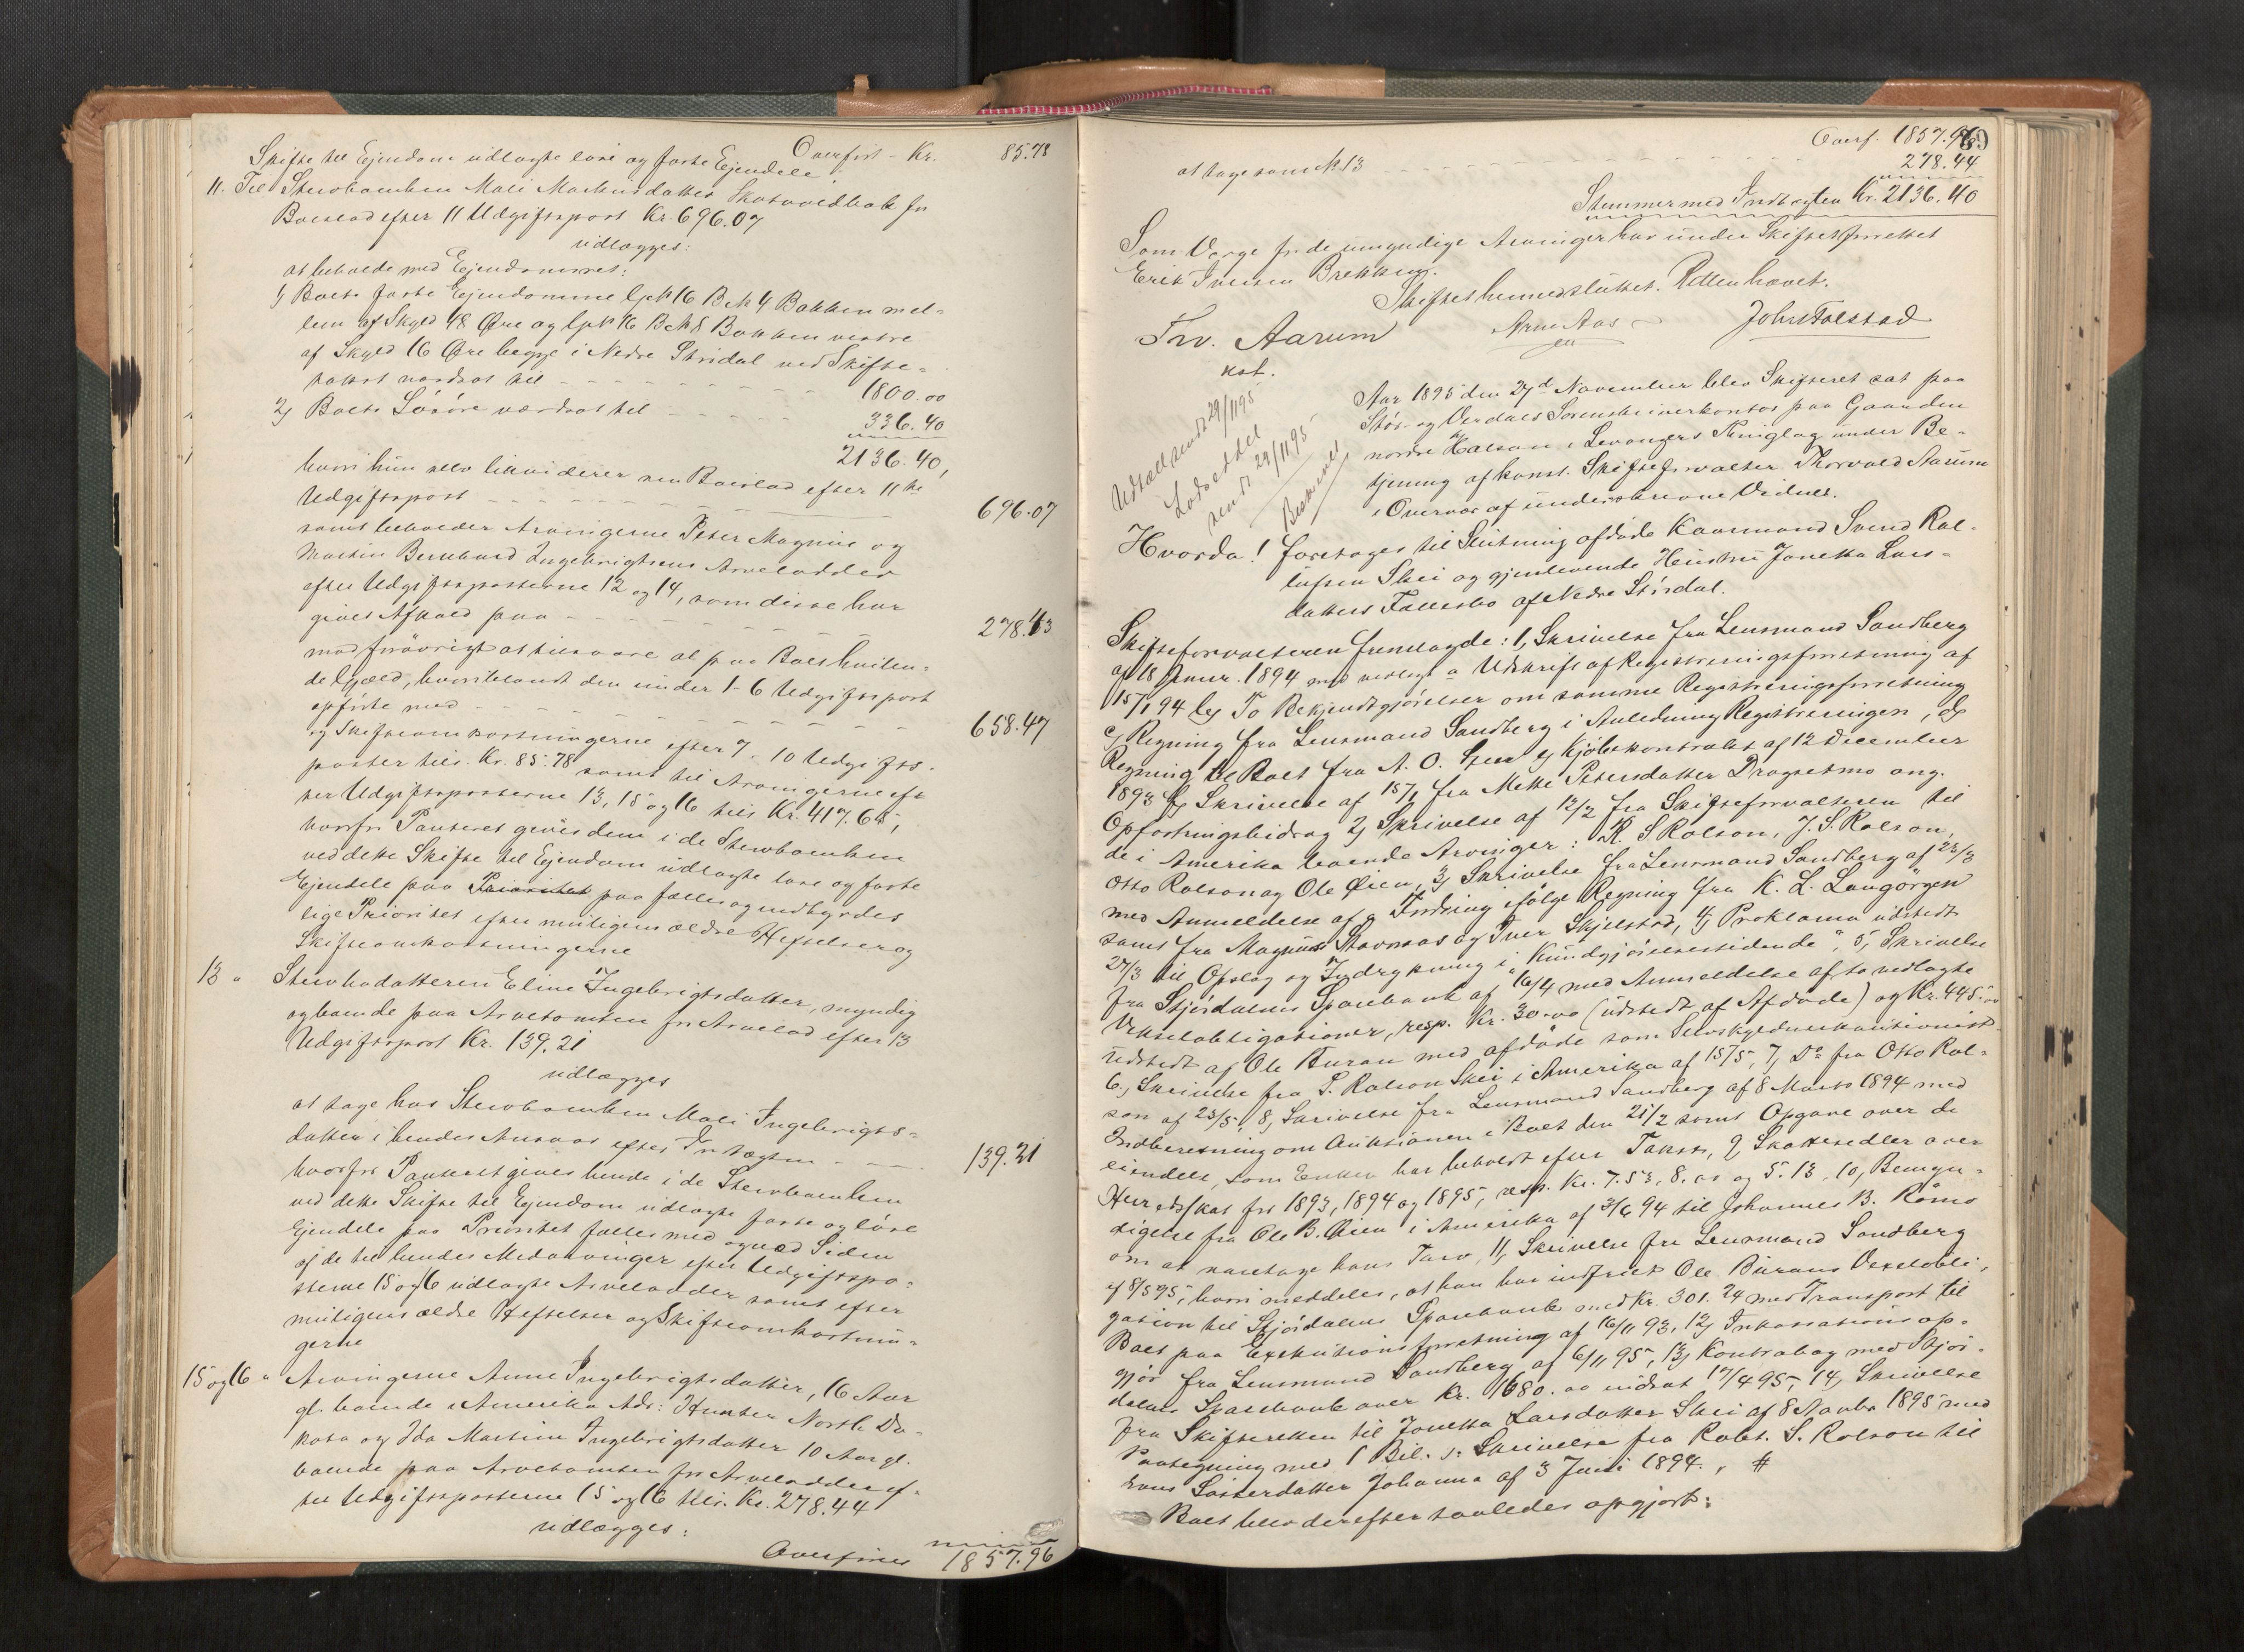 Overført - Kr. 85.78
Skifte til Ejendom udlagte løse og faste Ejendele
11. Til Stervboenken Mali Martinsdatter Skatvoldbak for
Boeslod efter 11 Udgiftspost Kr. 696.07
udlægges:
at beholde med Ejendomsret:
1) Boets faste Ejendomme Gr. № 16 B. № 4 Bakken mel=
lem af Skyld 48 Øre og Gr. № 16 B. № 8 Bakken vestre
af Skyld 16 Øre begge i Nedre Stjrdal ved Skifte=
takst værdsat til - - - 1800.00
2) Boets Løsøre værdsat til - - - 336.40
2136.40,
hvori hun selv likviderer sin Boeslod efter 11te
Udgiftspost - - - 696.07
samt beholder Arvingerne Peter Magnus og
Martin Bernhard Ingebrigtsens Arvelodder
efter Udgiftsposterne 12 og 14, som disse har
givet Afkald paa - - - 278.43
mod forøvrigt at tilsvare al paa Boet hvilen=
de Gjæld, hvoriblandt den under 1-6 Udgiftspost
opførte med - - - 658.47
og Skifteomkostningerne efter 7-10 Udgifts-
poster tils. Kr. 85.78 samt til Arvingerne ef=
ter Udgiftsposterne 13, 15 og 16 tils Kr. 417.65,
hvorfor Panteret gives dem i de Stervboenken
ved dette Skifte til Ejendom udlagte løse og faste
Ejendele paa Prioritet paa fælles og indbyrdes
lige Prioritet efter muligens ældre Heftelser og
Skifteomkostningerne
13 " Stervbodatteren Eline Ingebrigtsdatter, myndig
og boende paa Arvetomten for Arvelod efter 13
Udgiftspost Kr. 139.21
udlægges
at tage hos Stervboenken Mali Ingebrigts=
datter i hendes Ansvar efter Indtægten - - - 139.21
hvorfor Panteret gives hende i de Stervboenken
ved dette Skifte til Ejendom udlagte faste og løse
Ejendele paa Prioritet fælles med og ved Siden
af de til hendes Medarvinger efter Udgiftspo=
sterne 15 og 16 udlagte Arvelodder samt efter
muligens ældre Heftelser og Skifteomkostnin=
gerne
15 og 16 " Arvingerne Anne Ingebrigtsdatter, 16 Aar
gl. boende i Amerika Adr: Hunter North Da=
kota og Ida Martine Ingebrigtsdatter 10 Aar gl.
boende paa Arvetomten for Arvelodder ef=
ter Udgiftsposterne 15 og 16 tils. Kr. 278.44
udlægges:
Overføres 1857.96
Overf. 1857.96
at tage som № 13 - - - 278.44
Stemmer med Indtægten Kr. 2136.40
Som Værge for de umyndige Arvinger har under Skiftet fungeret
Erik Iversen Brekken.
Skiftet hermed sluttet. Retten hævet.
Trv. Aarum
kst.
Arne Aas
John Falstad
Udtall sendt 29/11 95
Lodseddel
sendt 29/11 95
Aar 1895 den 27d November blev Skifteret sat paa
Stjør- og Værdals Sorenskriverkontor paa Gaarden
nordre Halsan i Levangers Thinglag under Be=
tjening af konst. Skifteforvalter Thorvald Aarum
i Overvær af underskrevne Vidner.
Hvorda! foretoges til Slutning afdøde Kaarmand Svend Rol=
lufsen Skei og gjenlevende Hustru Jonetta Lars=
datters Fællesbo af Nedre Stjørdal.
Skifteforvalteren fremlagde: 1, Skrivelse fra Lensmand Sandberg
af 18 Januar. 1894 med vedlagt a Udskrift af Registreringsforretning af
15/1 94 b) To Bekjendtgjørelser om samme Registreringsforretning
c) Regning fra Lensmand Sandberg i Anledning Registreringen, d)
Regning til Boet fra A. O. Steen e) Kjøbekontrakt af 12 December
1893 f) Skrivelse af 15/1 fra Mette Petersdatter Dragsetmo ang.
Opfostringsbidrag 2) Skrivelse af 12/2 fra Skifteforvalteren til
de i Amerika boende Arvinger: R. S Rolson, J. S. Rolson,
Otto Rolson og Ole Øien, 3) Skrivelse fra Lensmand Sandberg af 23/3
med Anmeldelse af Fordring ifølge Regning fra K. L. Langørgen
samt fra Magnus Stavnaas og Iver Skjelstad, 4) Proklama udstedt
27/3 til Opslag og Indrykning i "Kundgjørelsestidende", 5, Skrivelse
fra Stjørdalens Sparebank af 16/4 med Anmeldelse af to vedlagte
Vekselobligationer, resp. Kr. 30.00 (udstedt af Afdøde) og Kr. 445.00
udstedt af Ole Buran med afdøde som Selvskyldnerkautionist
6, Skrivelse fra S. Rolson Skei i Amerika af 15/5, 7, Do fra Otto Rol=
son af 23/5. 8, Skrivelse fra Lensmand Sandberg af 8 Marts 1894 med
Indberetning om Auktionen i Boet den 21/2 samt Opgave over de
eiendele, som Enken har beholdt efter Taxt, 9, Skattesedler over
Herredsskat for 1893, 1894 og 1895, resp. Kr. 7.53, 8.00 og 5.13, 10, Bemyn=
digelse fra Ole B. Øien i Amerika af 3/6 94 til Johannes B. Rømo
om at varetage hans Tarv, 11, Skrivelse fra Lensmand Sandberg
af 8/5 95, hvori meddeles, at han har indfriet Ole Burans Vexelobli=
gation til Stjørdalens Sparebank med Kr. 301.24 med Transport til
Boet paa Exekutionsforretning af 16/11 93, 12, Inkassationsop=
gjør fra Lensmand Sandberg af 6/11 95, 13, Kontrabog med Stjør=
dalens Sparebank over Kr. 1680.00 indsat 17/4 95, 14, Skrivelse
fra Skifteretten til Jonetta Larsdatter Skei af 8 Novbr 1895 med
Paategning med 1 Bil. s: Skrivelse fra Robt. S. Rolson til
hans Søsterdatter Johanna af 3 Juni 1894. , #
Boet blev derefter saaledes opgjort: